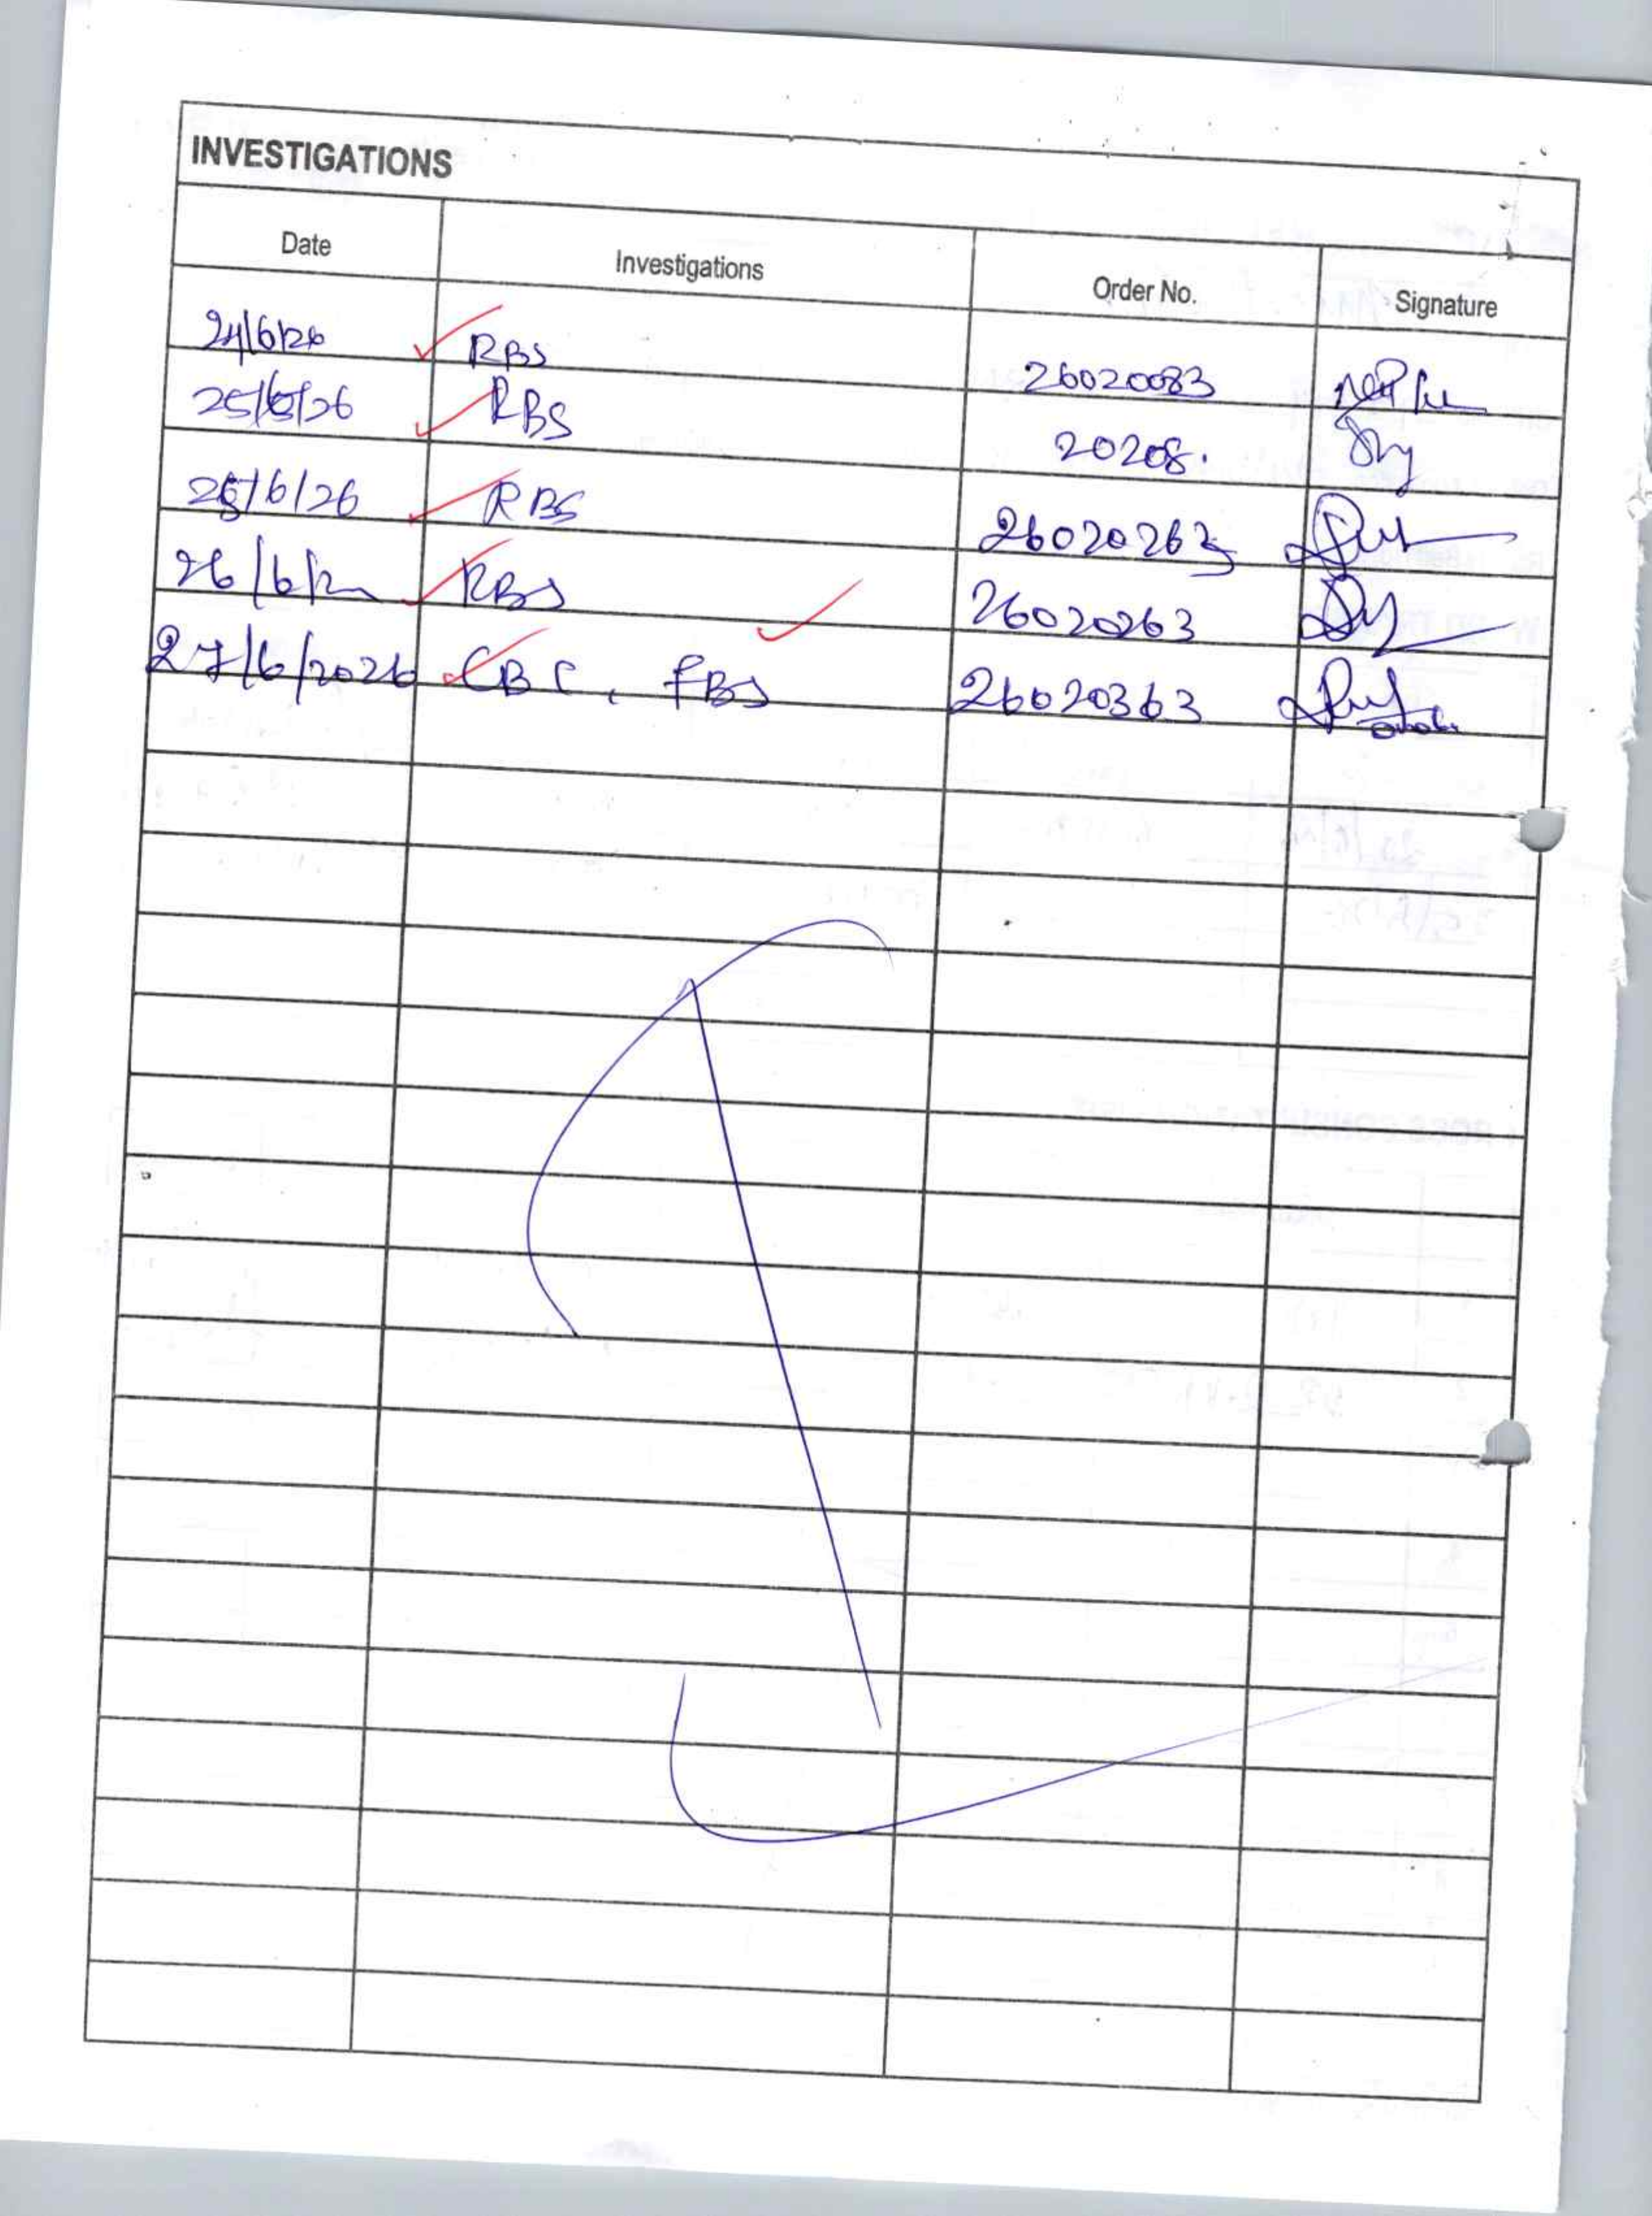 INVESTIGATIONS
Date Investigations Order No. Signature
24/6/26 RBS 26020083
25/6/26 RBS 20208.
25/6/26 RBS 26020263
26/6/ RBS 26020263
27/6/2026 CBC, FBS 26020363